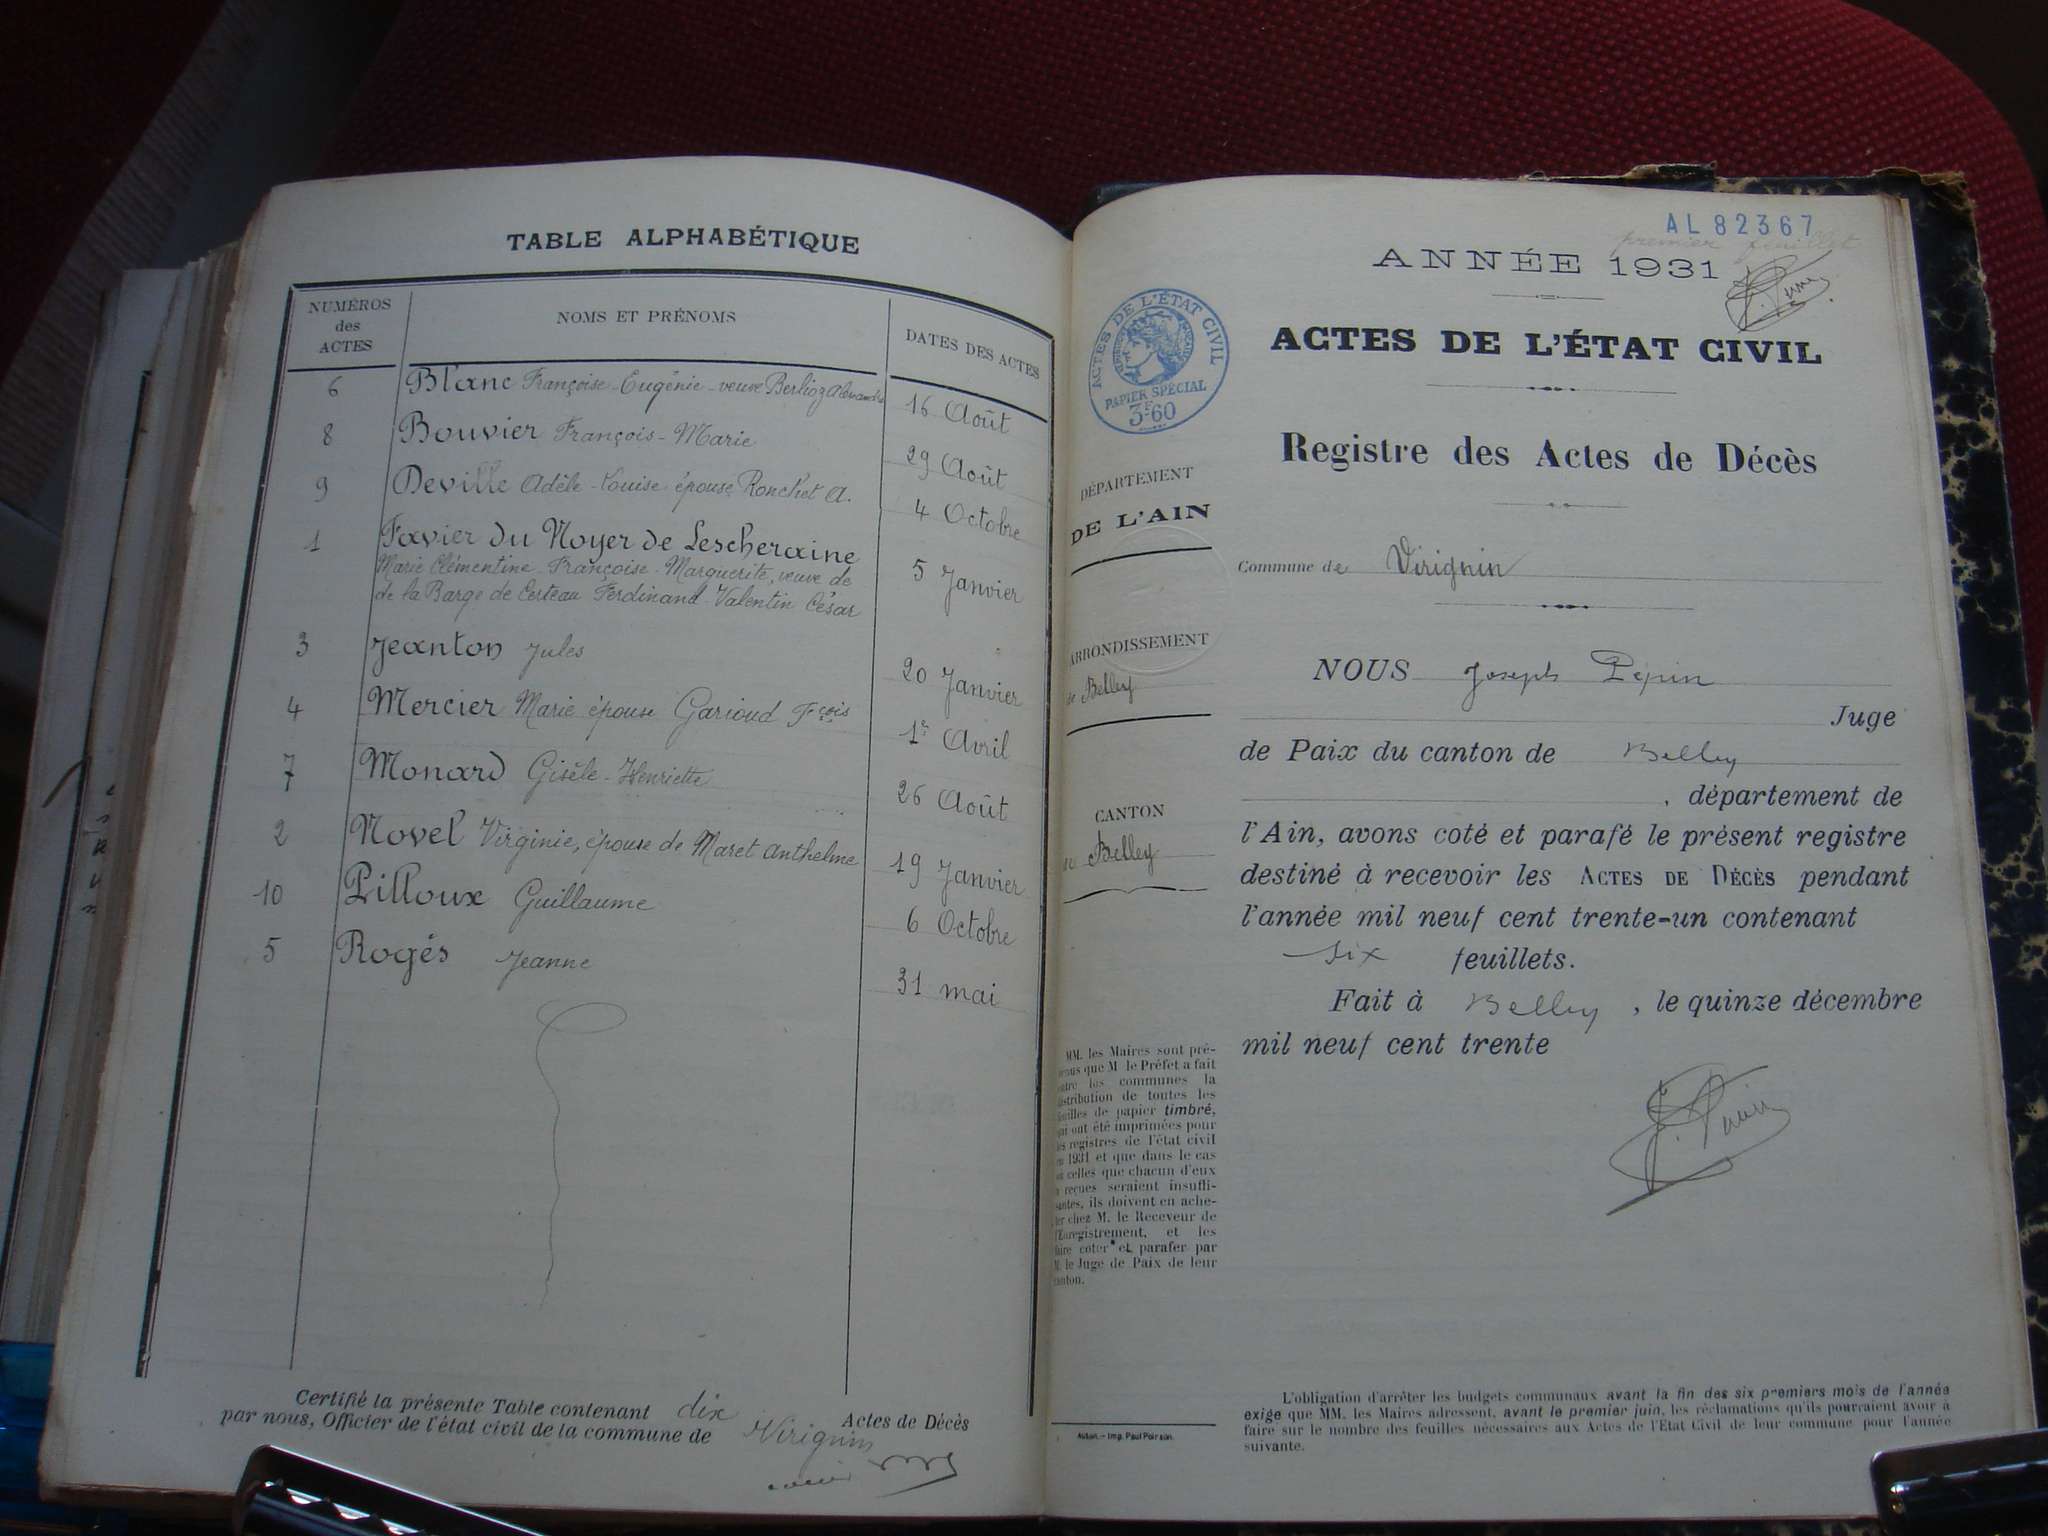 TABLE ALPHABÉTIQUE
NUMÉROS des ACTES NOMS ET PRÉNOMS DATES DES ACTES
6 Blanc Françoise-Eugénie-veuve Berlioz Alexandre 16 Août
8 Bouvier François-Marie 29 Août
9 Deville Adèle-Louise épouse Ronchet A. 4 Octobre
1 Favier du Noyer de Lescheraine 5 Janvier
Marie Clémentine-Françoise-Marguerite, veuve de
de la Barge de Certeau Ferdinand-Valentin César
3 Jeanton Jules 20 Janvier
4 Mercier Marie épouse Garioud Fçois 1er Avril
7 Monard Gisèle-Henriette 26 Août
2 Novel Virginie, épouse de Maret Anthelme 19 Janvier
10 Pilloux Guillaume 6 Octobre
5 Rogés Jeanne 31 mai
Certifié la présente Table contenant dix Actes de Décès
par nous, Officier de l'état civil de la commune de Virignin
AL 82367
premier feuillet
ANNÉE 1931
ACTES DE L'ÉTAT CIVIL
PAPIER SPÉCIAL
3F60
ACTES DE L'ÉTAT CIVIL
Registre des Actes de Décès
DÉPARTEMENT
DE L'AIN
Commune de Virignin
ARRONDISSEMENT
de Belley
CANTON
de Belley
NOUS Joseph Pépin
Juge
de Paix du canton de Belley
, département de
l'Ain, avons coté et parafé le présent registre
destiné à recevoir les ACTES DE DÉCÈS pendant
l'année mil neuf cent trente-un contenant
six feuillets.
Fait à Belley, le quinze décembre
mil neuf cent trente
MM. les Maires sont pré-
venus que M le Préfet a fait
entre les communes la
distribution de toutes les
feuilles de papier timbré,
qui ont été imprimées pour
les registres de l'état civil
en 1931 et que dans le cas
où celles que chacun d'eux
a reçues seraient insuffi-
santes, ils doivent en ache-
ter chez M. le Receveur de
l'Enregistrement, et les
faire coter et parafer par
M. le Juge de Paix de leur
canton.
Autun.- Imp. Paul Poirson
L'obligation d'arrêter les budgets communaux avant la fin des six premiers mois de l'année
exige que MM. les Maires adressent, avant le premier juin, les réclamations qu'ils pourraient avoir à
faire sur le nombre des feuilles nécessaires aux Actes de l'Etat Civil de leur commune pour l'année
suivante.